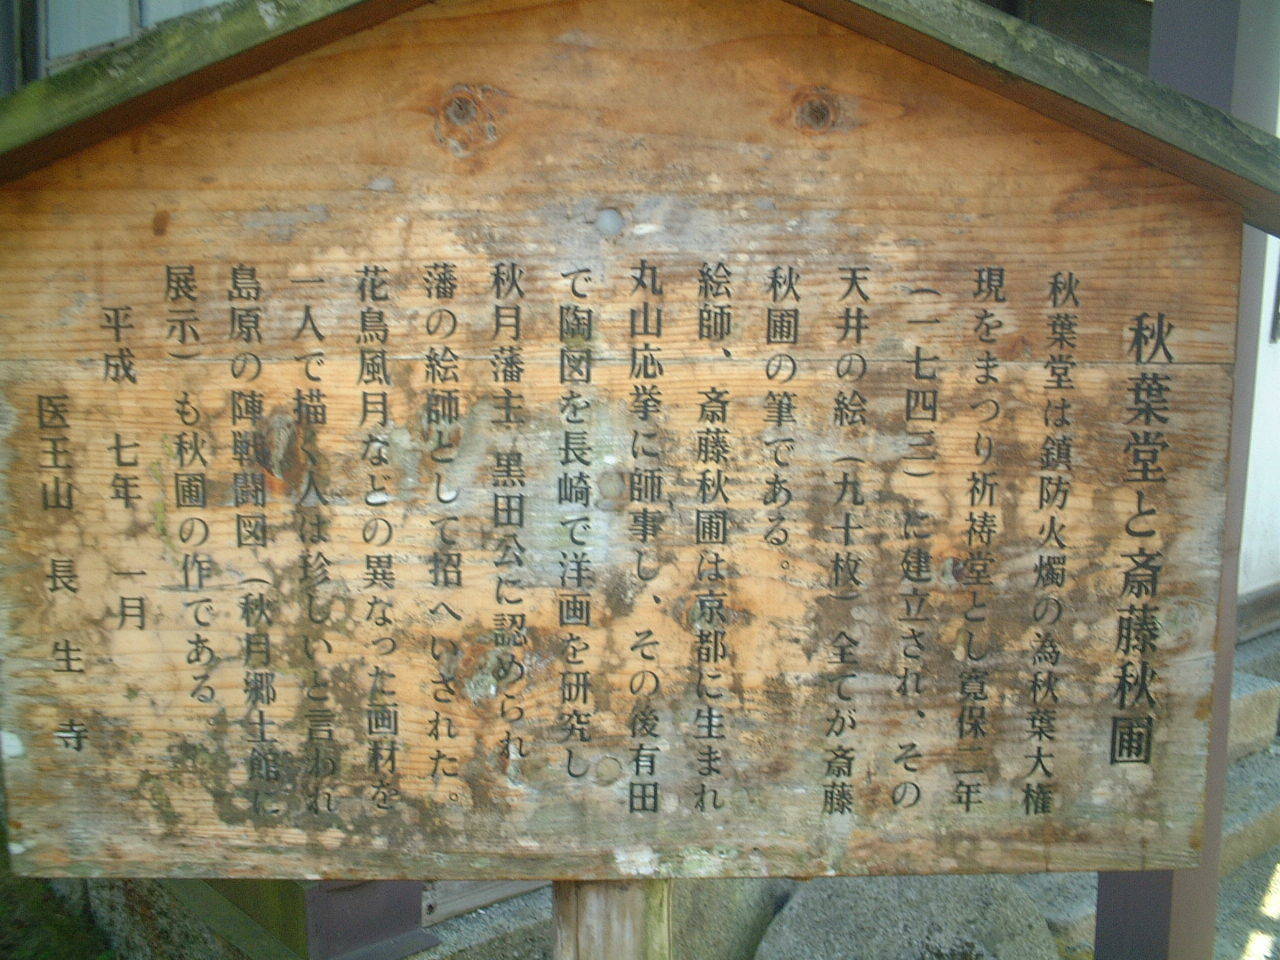 秋葉堂と斎藤秋圃
秋葉堂は鎮防火燭の為秋葉大権
現をまつり祈祷堂とし寛保二年
(一七四三)に建立され、その
天井の絵(九十枚)全てが斎藤
秋圃の筆である。
絵師、斎藤秋圃は京都に生まれ
丸山応挙に師事し、その後有田
で陶図を長崎で洋画を研究し
秋月藩主黒田公に認められ
藩の絵師として招へいされた。
花鳥風月などの異なった画材を
一人で描く人は珍しいと言われ
島原の陣戦闘図(秋月郷土館に
展示)も秋圃の作である。
平成 七年 一月
医王山 長生寺